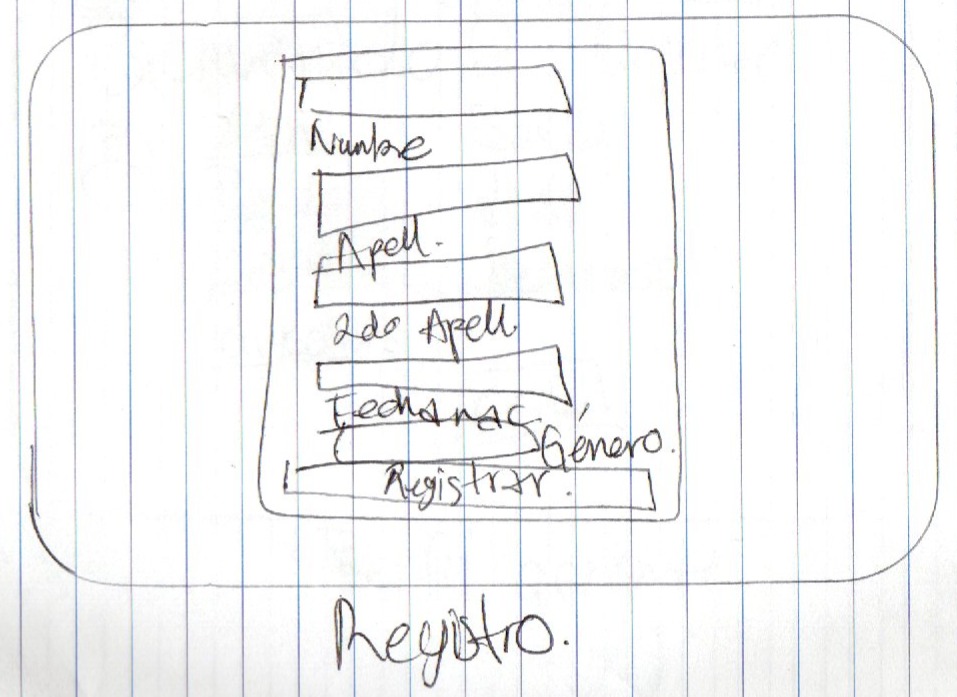 Numbre
Apell.
2do Apell.
Fechanac
Género.
Registrar.
Registro.